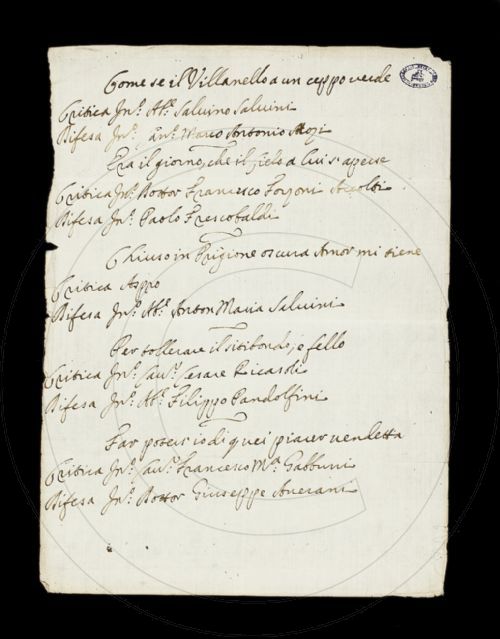 Come se il Villanello a un ceppo verde
Critica Jn.º Ab.e Salvino Salvini
Difesa Jn.º Marco Antonio Mozi
Era il giorno, che il Cielo a lui s'aperse
Critica Jn.º Dottor Francesco Forzoni Accolti
Difesa Jn.º Paolo Frescobaldi
Chiuso in Prigione oscura Amor mi tiene
Critica Aspro
Difesa Jn.º Ab.e Anton Maria Salvini
Per tollerare il sitibondo, e fello
Critica Jn.º Cau.r Cesare Ricasoli
Difesa Jn.º Ab.e Filippo Pandolfini
Far potess'io di quei piacer vendetta
Critica Jn.º Cau.r Francesco M.a Gabburri
Difesa Jn.º Dottor Giuseppe Averani